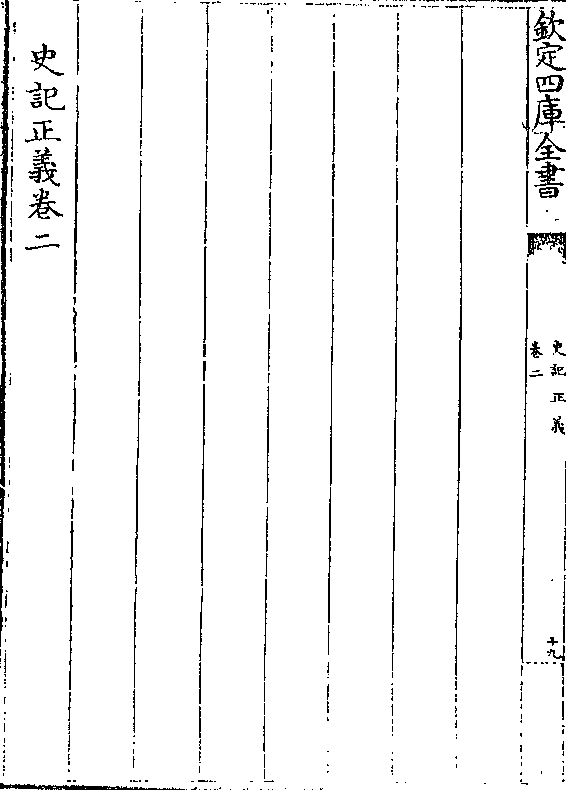 欽定四庫全書
史記正義
卷二
十九
史記正義卷二